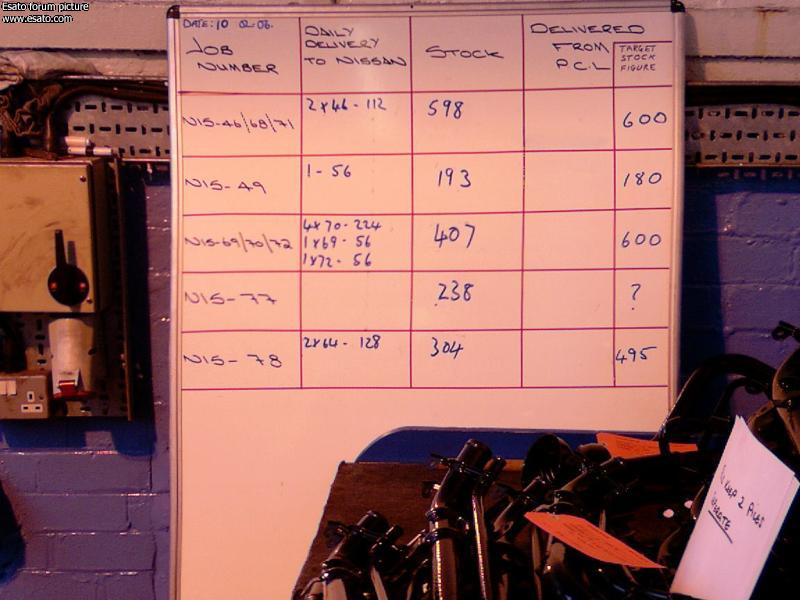 Esato forum picture
www.esato.com
DATE: 10 02.06.
JOB NUMBER
DAILY DELIVERY TO NISSAN
STOCK
DELIVERED FROM P.C.L
TARGET STOCK FIGURE
N15-46/68/71
2x46-112
598
600
N15-49
1-56
193
180
N15-69/70/72
4x70-224
1x69-56
1x72-56
407
600
N15-77
238
?
N15-78
2x64-128
304
495
KEEP 2 Piles